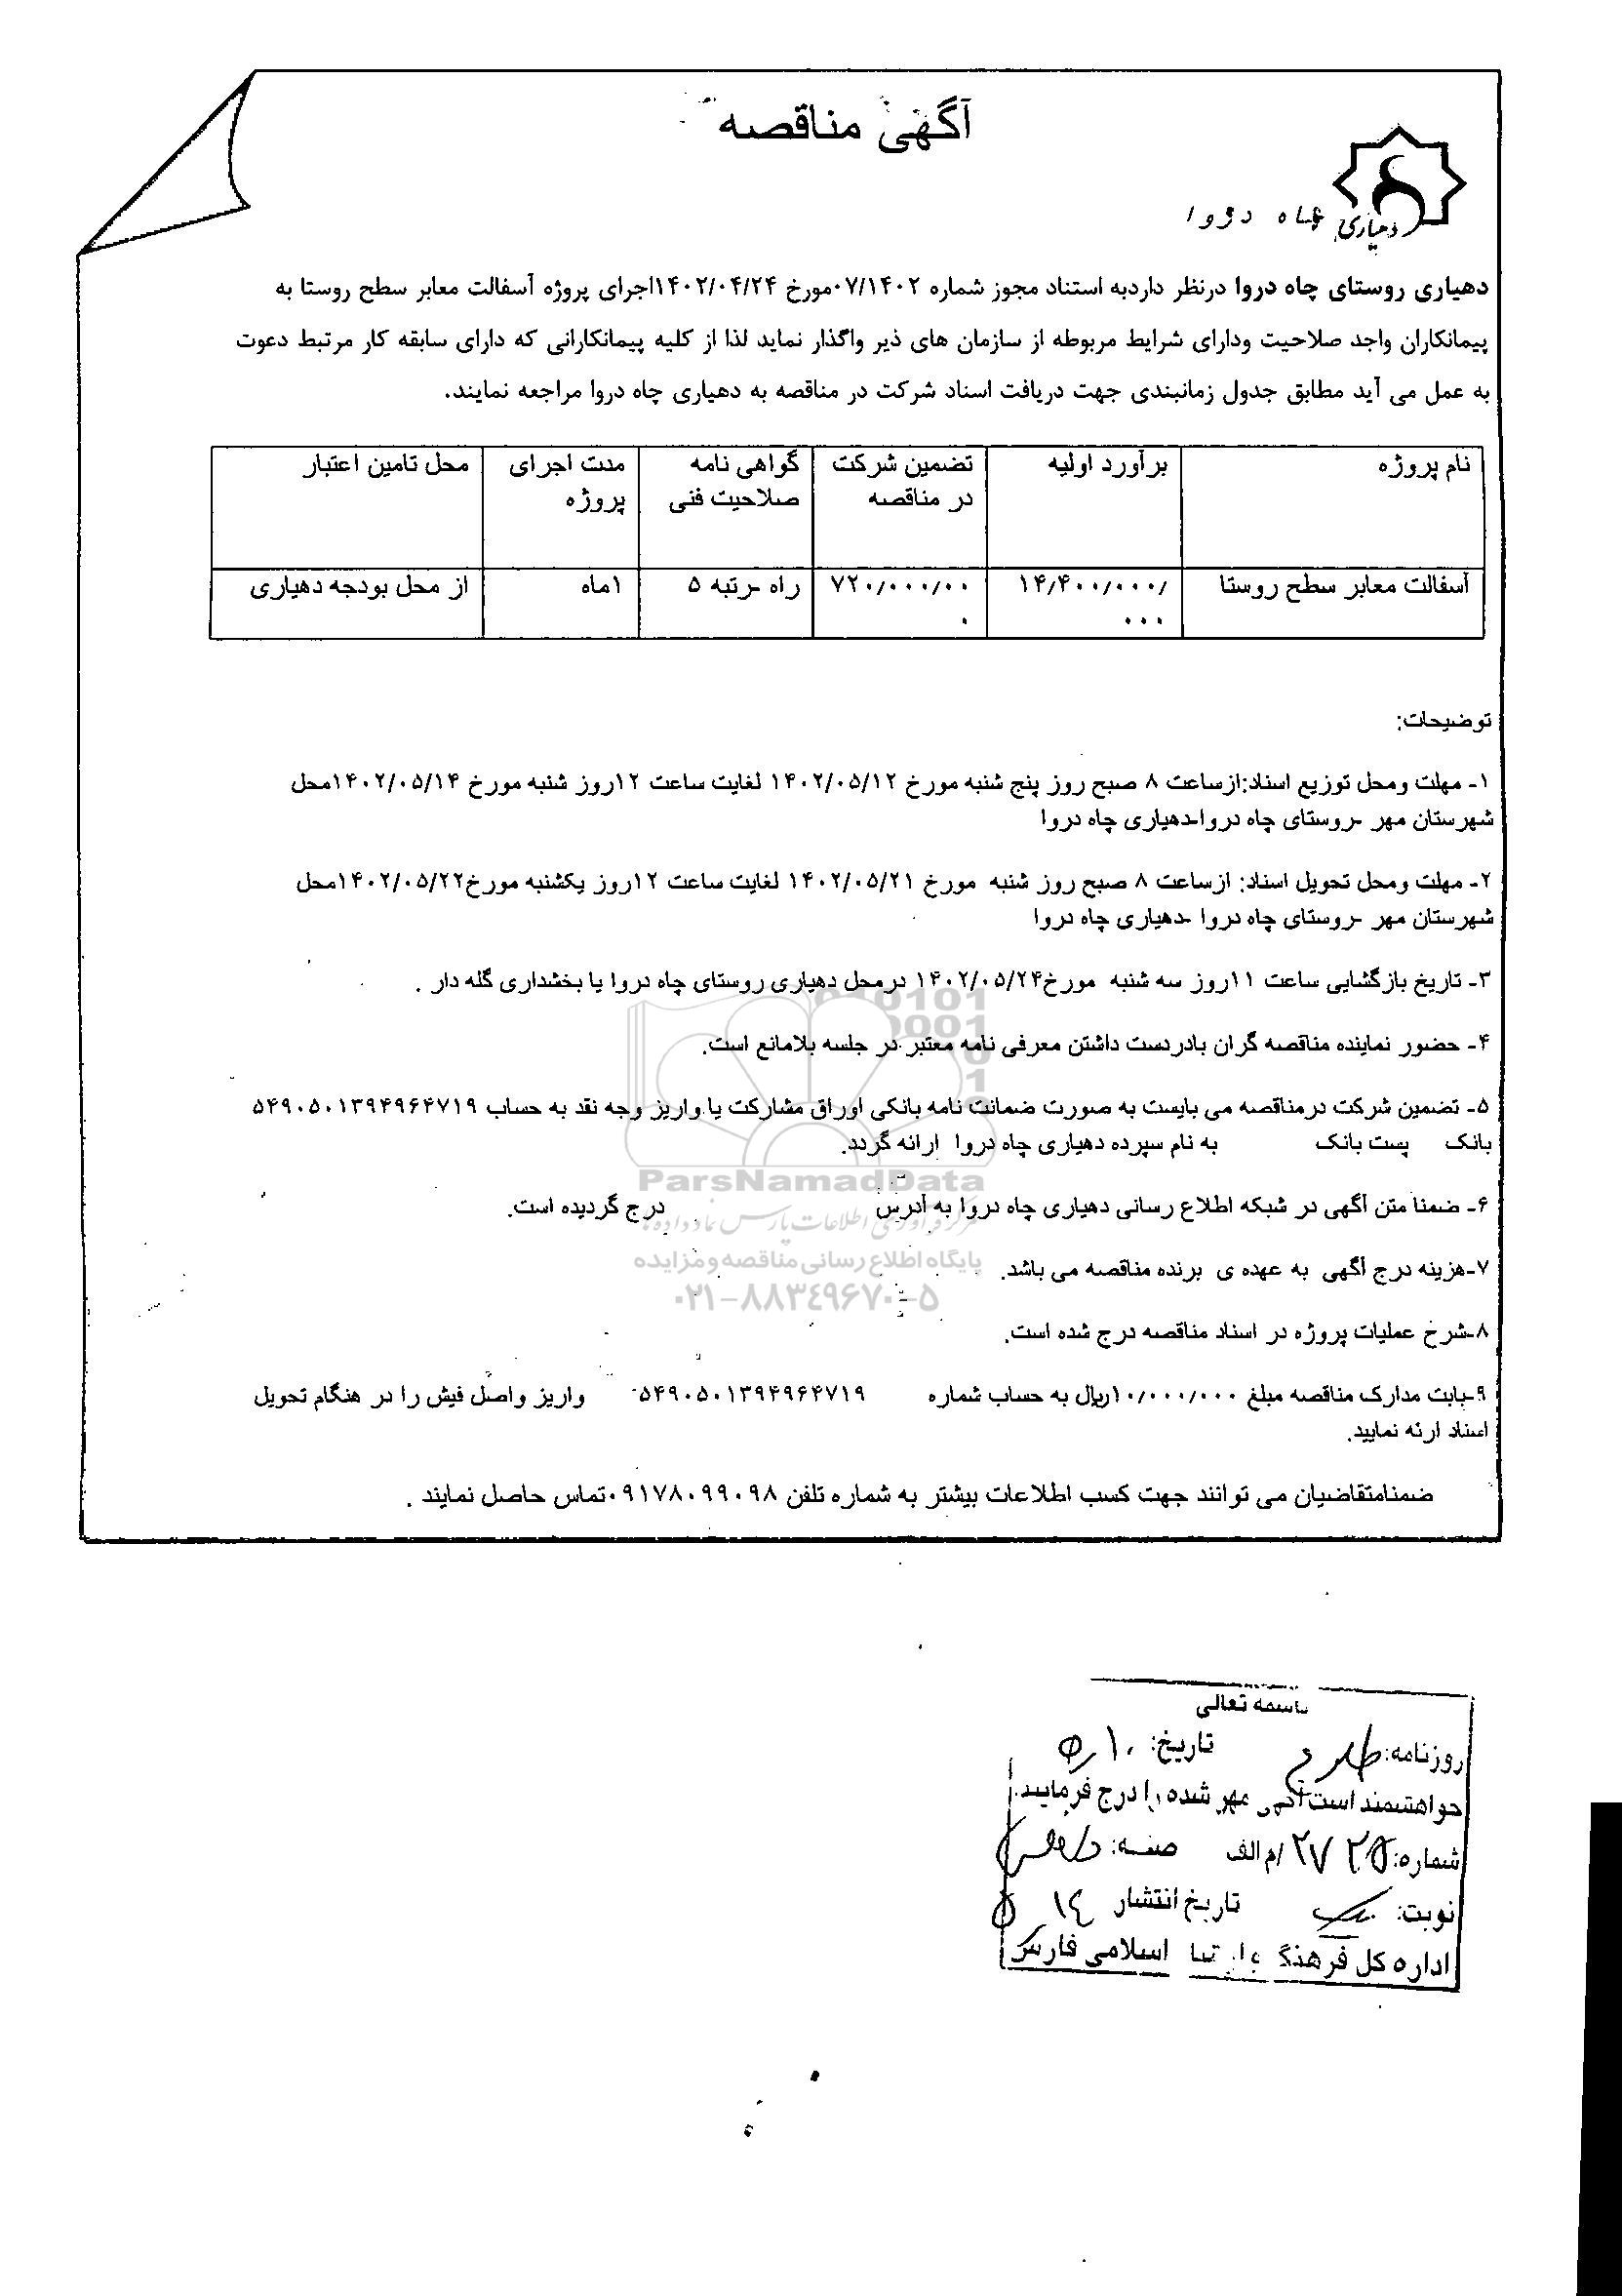 آگهی مناقصه
دهیاری چاه دروا
دهیاری روستای چاه دروا درنظر داردبه استناد مجوز شماره ۰۷/۱۴۰۲مورخ ۱۴۰۲/۰۴/۲۴اجرای پروژه آسفالت معابر سطح روستا به
پیمانکاران واجد صلاحیت ودارای شرایط مربوطه از سازمان های ذیر واگذار نماید لذا از کلیه پیمانکارانی که دارای سابقه کار مرتبط دعوت
به عمل می آید مطابق جدول زمانبندی جهت دریافت اسناد شرکت در مناقصه به دهیاری چاه دروا مراجعه نمایند.
نام پروژه برآورد اولیه تضمین شرکت گواهی نامه مدت اجرای محل تامین اعتبار
در مناقصه صلاحیت فنی پروژه
آسفالت معابر سطح روستا ۱۴/۴۰۰/۰۰۰/ ۷۲۰/۰۰۰/۰۰ راه -رتبه ۵ ۱ماه از محل بودجه دهیاری
۰۰۰ ۰
توضیحات:
۱- مهلت ومحل توزیع اسناد:ازساعت ۸ صبح روز پنج شنبه مورخ ۱۴۰۲/۰۵/۱۲ لغایت ساعت ۱۲روز شنبه مورخ ۱۴۰۲/۰۵/۱۴محل
شهرستان مهر -روستای چاه دروا-دهیاری چاه دروا
۲- مهلت ومحل تحویل اسناد: ازساعت ۸ صبح روز شنبه مورخ ۱۴۰۲/۰۵/۲۱ لغایت ساعت ۱۲روز یکشنبه مورخ۱۴۰۲/۰۵/۲۲محل
شهرستان مهر -روستای چاه دروا -دهیاری چاه دروا
۳- تاریخ بازگشایی ساعت ۱۱روز سه شنبه مورخ۱۴۰۲/۰۵/۲۴ درمحل دهیاری روستای چاه دروا یا بخشداری گله دار .
۴- حضور نماینده مناقصه گران بادردست داشتن معرفی نامه معتبر در جلسه بلامانع است.
۵- تضمین شرکت درمناقصه می بایست به صورت ضمانت نامه بانکی اوراق مشارکت یا واریز وجه نقد به حساب ۵۴۹۰۵۰۱۳۹۴۹۶۴۷۱۹
بانک پست بانک به نام سپرده دهیاری چاه دروا ارائه گردد.
ParsNamadData
۶- ضمنا متن آگهی در شبکه اطلاع رسانی دهیاری چاه دروا به آدرس درج گردیده است.
پایگاه اطلاع رسانی مناقصه و مزایده
۷-هزینه درج آگهی به عهده ی برنده مناقصه می باشد.
۰۲۱-۸۸۳۴۹۶۷۰-۵
۸-شرح عملیات پروژه در اسناد مناقصه درج شده است.
۹-بابت مدارک مناقصه مبلغ ۱۰/۰۰۰/۰۰۰ریال به حساب شماره ۵۴۹۰۵۰۱۳۹۴۹۶۴۷۱۹ واریز واصل فیش را در هنگام تحویل
اسناد ارئه نمایید.
ضمنامتقاضیان می توانند جهت کسب اطلاعات بیشتر به شماره تلفن ۰۹۱۷۸۰۹۹۰۹۸تماس حاصل نمایند .
باسمه تعالی
روزنامه: تاریخ: ۱۰ ۵
خواهشمند است آگهی مهر شده را درج فرمایید.
شماره: ۲۷۲۵ /م الف صفحه: داخلی
نوبت: یک تاریخ انتشار ۱۴ ۵
اداره کل فرهنگ و ارشاد اسلامی فارس